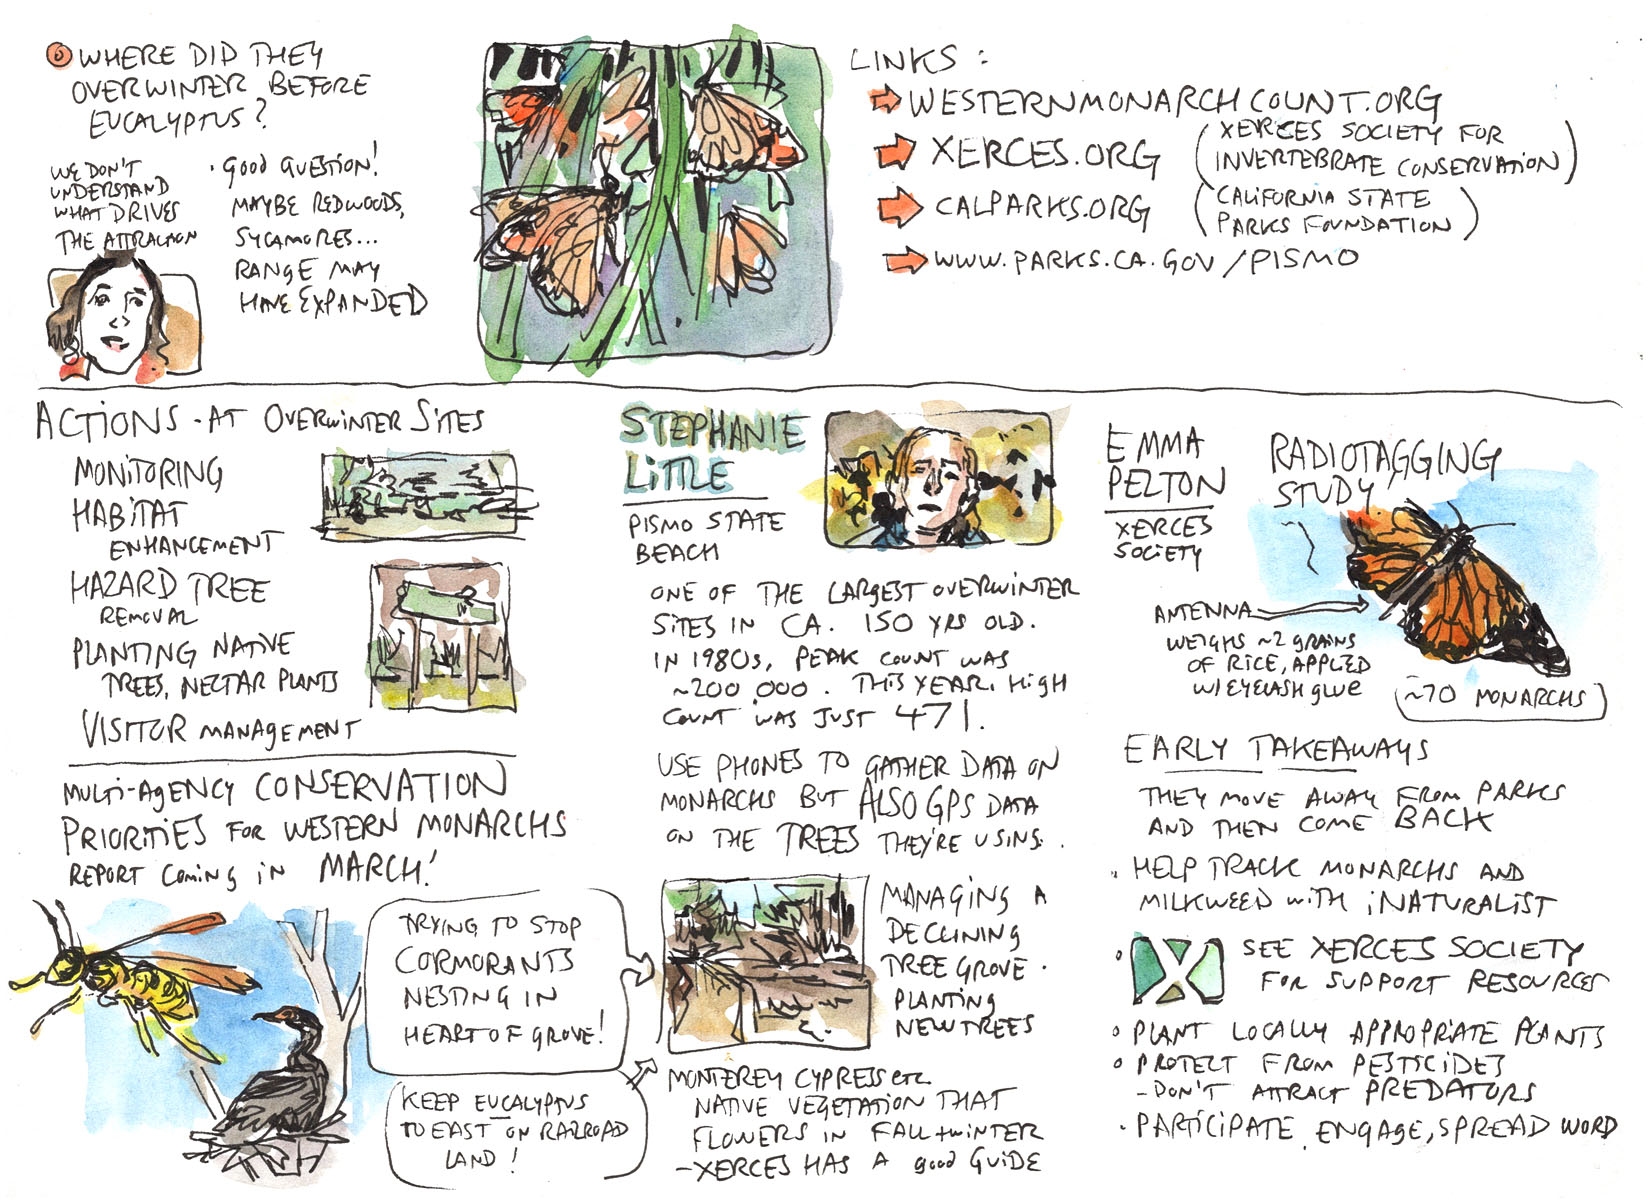 WHERE DID THEY
OVERWINTER BEFORE
EUCALYPTUS?
WE DON'T
UNDERSTAND
WHAT DRIVES
THE ATTRACTION
· GOOD QUESTION!
MAYBE REDWOODS,
SYCAMORES...
RANGE MAY
HAVE EXPANDED
LINKS:
WESTERNMONARCHCOUNT.ORG
XERCES.ORG
(XERCES SOCIETY FOR
INVERTEBRATE CONSERVATION)
CALPARKS.ORG
(CALIFORNIA STATE
PARKS FOUNDATION)
WWW.PARKS.CA.GOV/PISMO
ACTIONS - AT OVERWINTER SITES
MONITORING
HABITAT
ENHANCEMENT
HAZARD TREE
REMOVAL
PLANTING NATIVE
TREES, NECTAR PLANTS
VISITOR MANAGEMENT
MULTI-AGENCY CONSERVATION
PRIORITIES FOR WESTERN MONARCHS
REPORT COMING IN MARCH!
TRYING TO STOP
CORMORANTS
NESTING IN
HEART OF GROVE!
KEEP EUCALYPTUS
TO EAST ON RAILROAD
LAND!
STEPHANIE
LITTLE
PISMO STATE
BEACH
ONE OF THE LARGEST OVERWINTER
SITES IN CA. 150 YRS OLD.
IN 1980s, PEAK COUNT WAS
~200 000. THIS YEAR, HIGH
COUNT WAS JUST 471.
USE PHONES TO GATHER DATA ON
MONARCHS BUT ALSO GPS DATA
ON THE TREES THEY'RE USING.
MANAGING A
DECLINING
TREE GROVE.
PLANTING
NEW TREES
MONTEREY CYPRESS etc.
NATIVE VEGETATION THAT
FLOWERS IN FALL + WINTER
- XERCES HAS A GOOD GUIDE
EMMA
PELTON
XERCES
SOCIETY
RADIOTAGGING
STUDY
ANTENNA
WEIGHS ~2 GRAINS
OF RICE, APPLIED
W/ EYELASH GLUE
(~70 MONARCHS)
EARLY TAKEAWAYS
THEY MOVE AWAY FROM PARKS
AND THEN COME BACK
· HELP TRACK MONARCHS AND
MILKWEED WITH iNATURALIST
◦ SEE XERCES SOCIETY
FOR SUPPORT RESOURCES
◦ PLANT LOCALLY APPROPRIATE PLANTS
◦ PROTECT FROM PESTICIDES
- DON'T ATTRACT PREDATORS
· PARTICIPATE, ENGAGE, SPREAD WORD